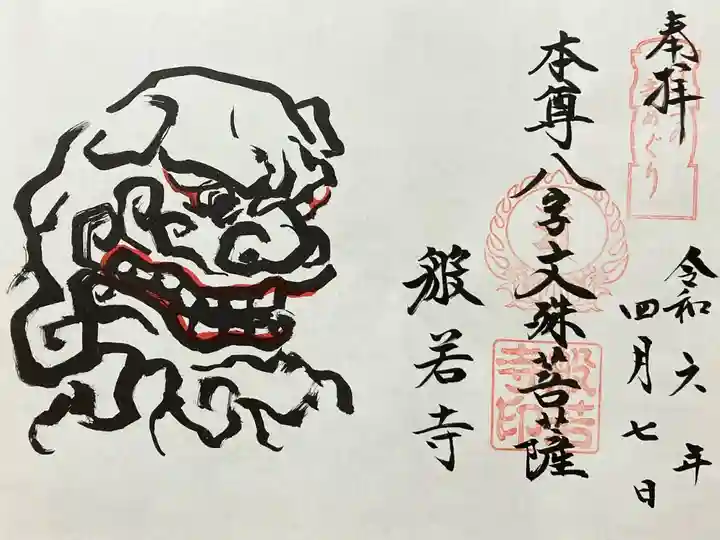 奉拝
めぐり
令和六年
四月七日
本尊八字文殊菩薩
般若寺
般若
寺印